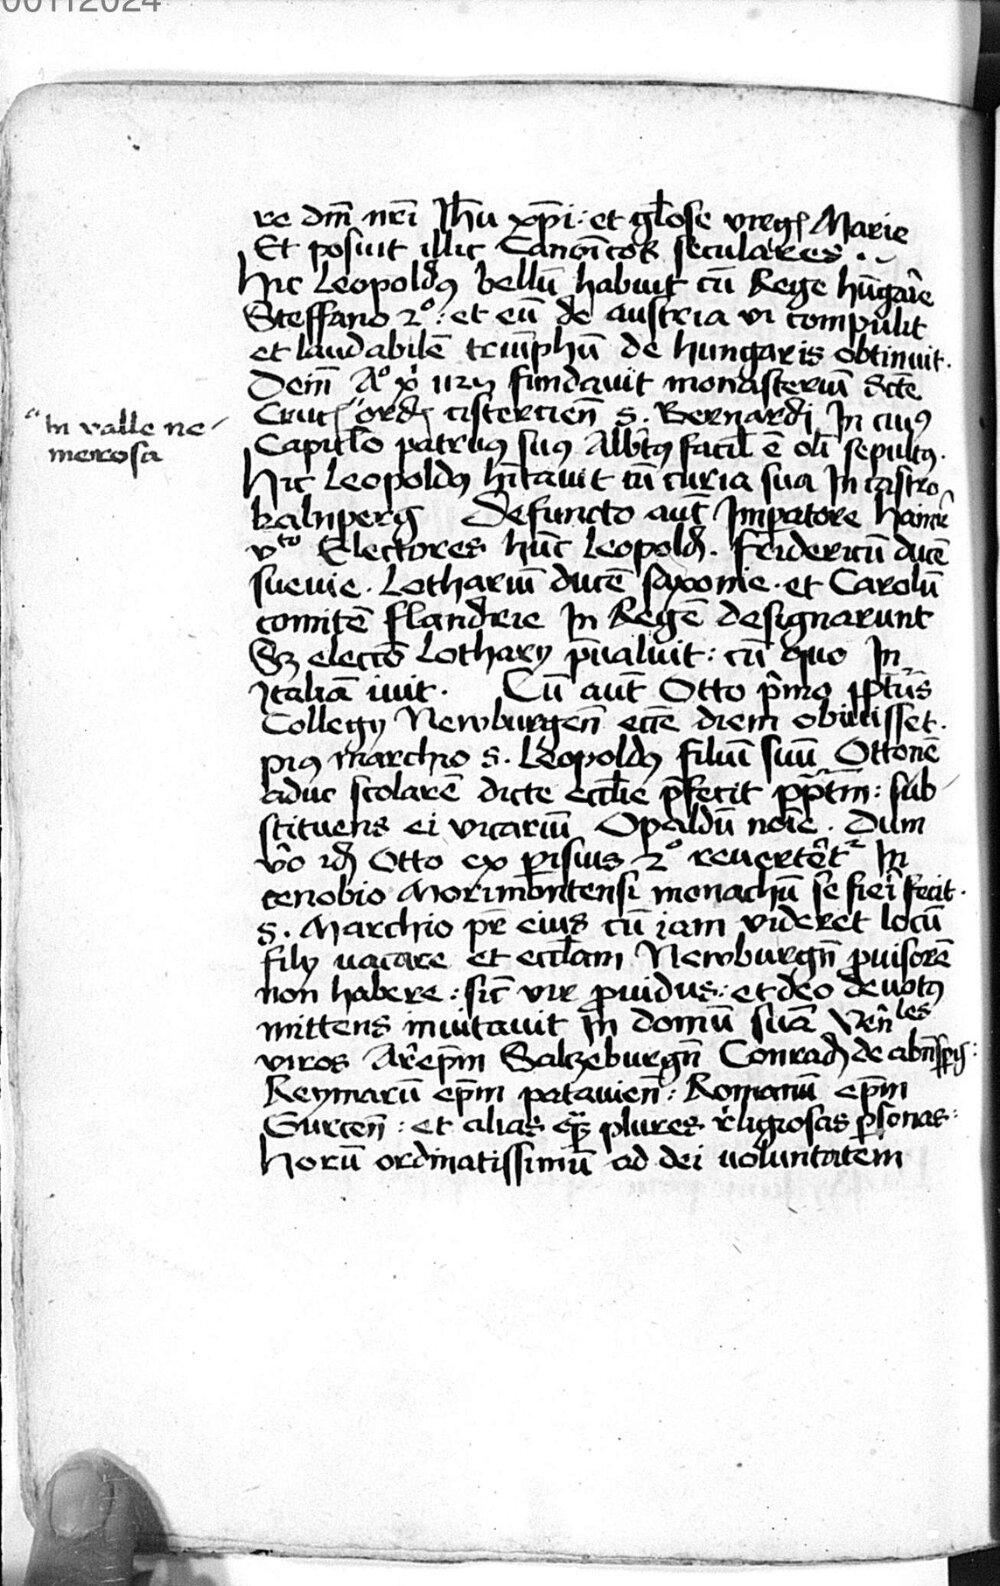 00112024
re dm̄ nr̄i Jh̄u xp̄i : et gl̄ose virgꝭ Marie
Et posuit illic Canōicoꝝ seculares . ~
Hic Leopoldꝰ bellū habuit cū Rege hūgarie
Steffano 2º : et eū de austria vi compulit
et laudabilē triūphū de hungaris obtinuit .
Dein̄ Aº
fundavit monasteriū Scte
Crucꝭ " ordꝭ cistercien̄ s. Bernardi In cuiꝰ
" In valle ne-
merosa
Capitl̄o patruꝰ suꝰ Alb̄tꝰ
ē oli sepultꝰ .
Hic Leopoldꝰ hītavit cū curia sua In castro
kalnperg Defuncto aut̄ Imperatore Hainric̄
vto Electores hūc Leopold . fridericū ducē
suevie . Lothariū ducē saxonie . et Carolū
comitē flandrie In Regē designarunt
Sꝫ electō Lothary p̄valuit : cū quo In
Italiā ivit . Cū aut̄ Otto p̄mꝰ
Collegy Newburgen̄
diem obiisset .
piꝰ marchio s. Leopoldꝰ filiū suū Ottonē
aduc scolarē dicte eccl̄ie p̄fecit pp̄tm̄ : sub-
stituens ei vicariū Opaldū noīe . Dum
v̄o
Otto ex parisius 2º
In
cenobio Morimontensi monachū se fieri fecit .
s. Marchio pr̄ eius cū iam videret locū
fily vacare et eccl̄iam Newburgn̄ ꝓvisorē
non habere : sic̄ vir ꝓvidus : et deo devotꝰ
mittens invitavit In domū suā Ven̄les
viros Ar̄epm̄ Salczeburgn̄ Conrad de abn̄sp̄g :
Reymarū ep̄m patavien̄ : Romanū ep̄m
Gurcen̄ : et alias qꝫ plures religiosas ꝑsonas :
Horū ordinatissimū ad dei voluntatem